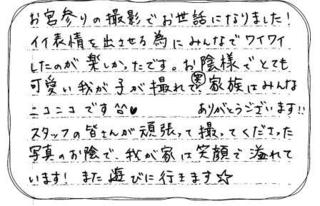 お宮参りの撮影でお世話になりました!
イイ表情を出させる為にみんなでワイワイ
したのが楽しかったです。お陰様でとても
可愛い我が子が撮れて家族はみんな
ニコニコです^^♥ ありがとうございます!!
スタッフの皆さんが頑張って撮ってくださった
写真のお陰で、我が家は笑顔で溢れて
います! また遊びに行きます☆